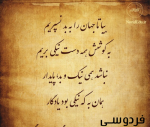 بیا تا جهان را به بد نسپریم
به کوشش همه دست نیکی بریم
نباشد همی نیک و بد پایدار
همان به که نیکی بود یادگار
فردوسی